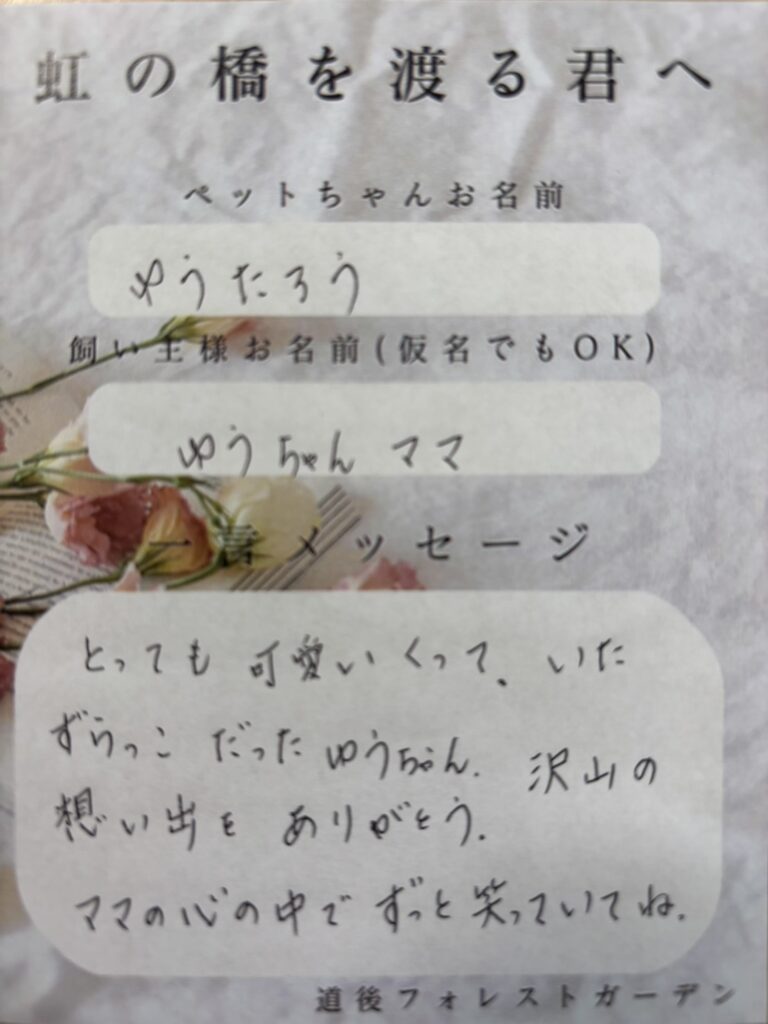 虹の橋を渡る君へ
ペットちゃんお名前
ゆうたろう
飼い主様お名前(仮名でもOK)
ゆうちゃん ママ
一言メッセージ
とっても 可愛いくって、いた
ずらっこ だった ゆうちゃん. 沢山の
想い出を ありがとう.
ママの心の中で ずっと 笑っていてね.
道後フォレストガーデン